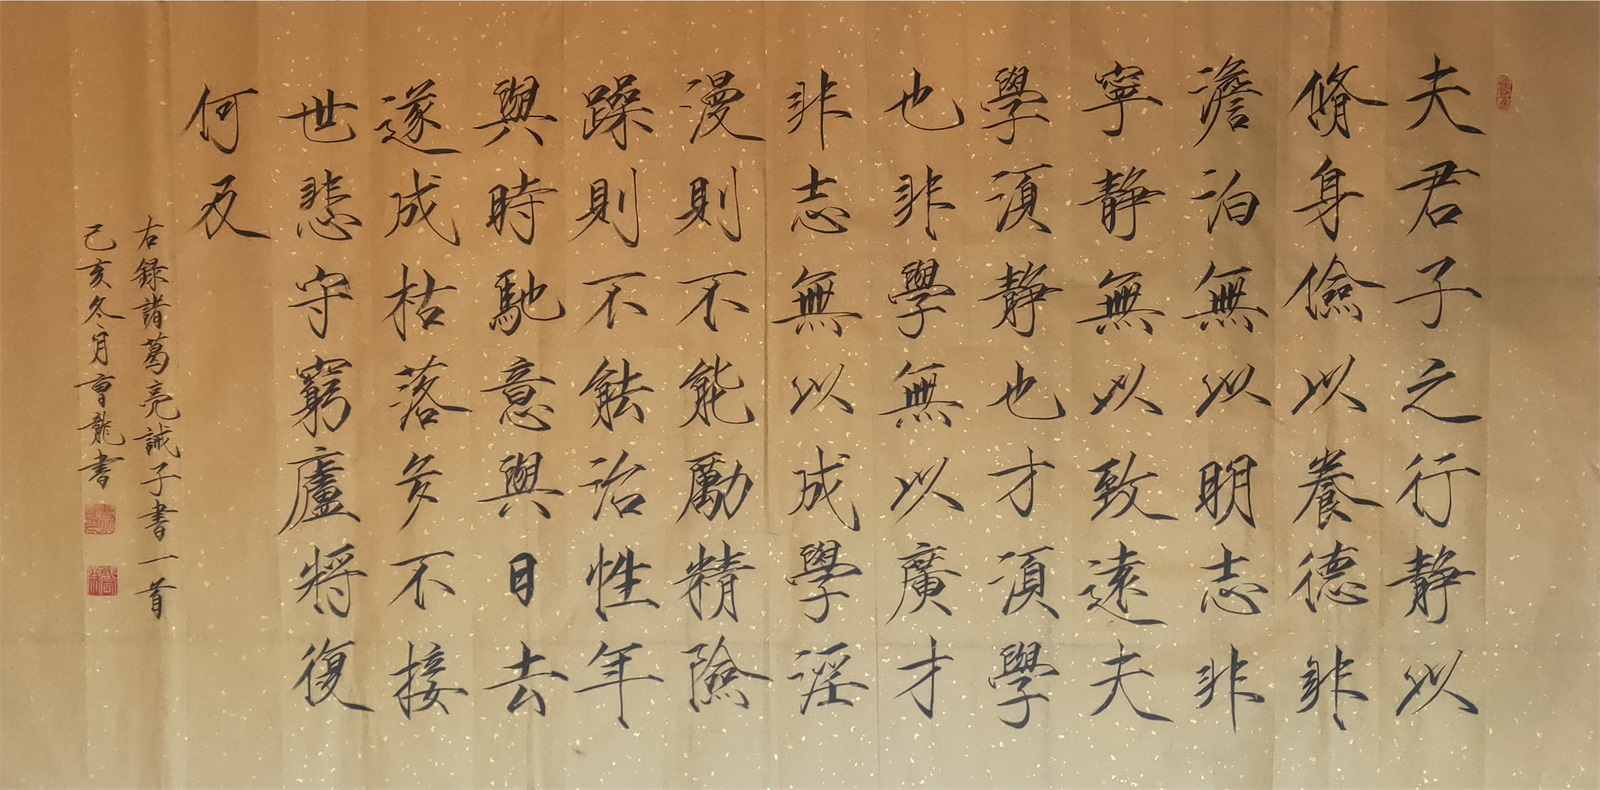 夫君子之行靜以
脩身儉以養德非
澹泊無以明志非
寧靜無以致遠夫
學須靜也才須學
也非學無以廣才
非志無以成學淫
漫則不能勵精險
躁則不能治性年
與時馳意與日去
遂成枯落多不接
世悲守窮廬將復
何及
右録諸葛亮誡子書一首
己亥冬月曹龍書